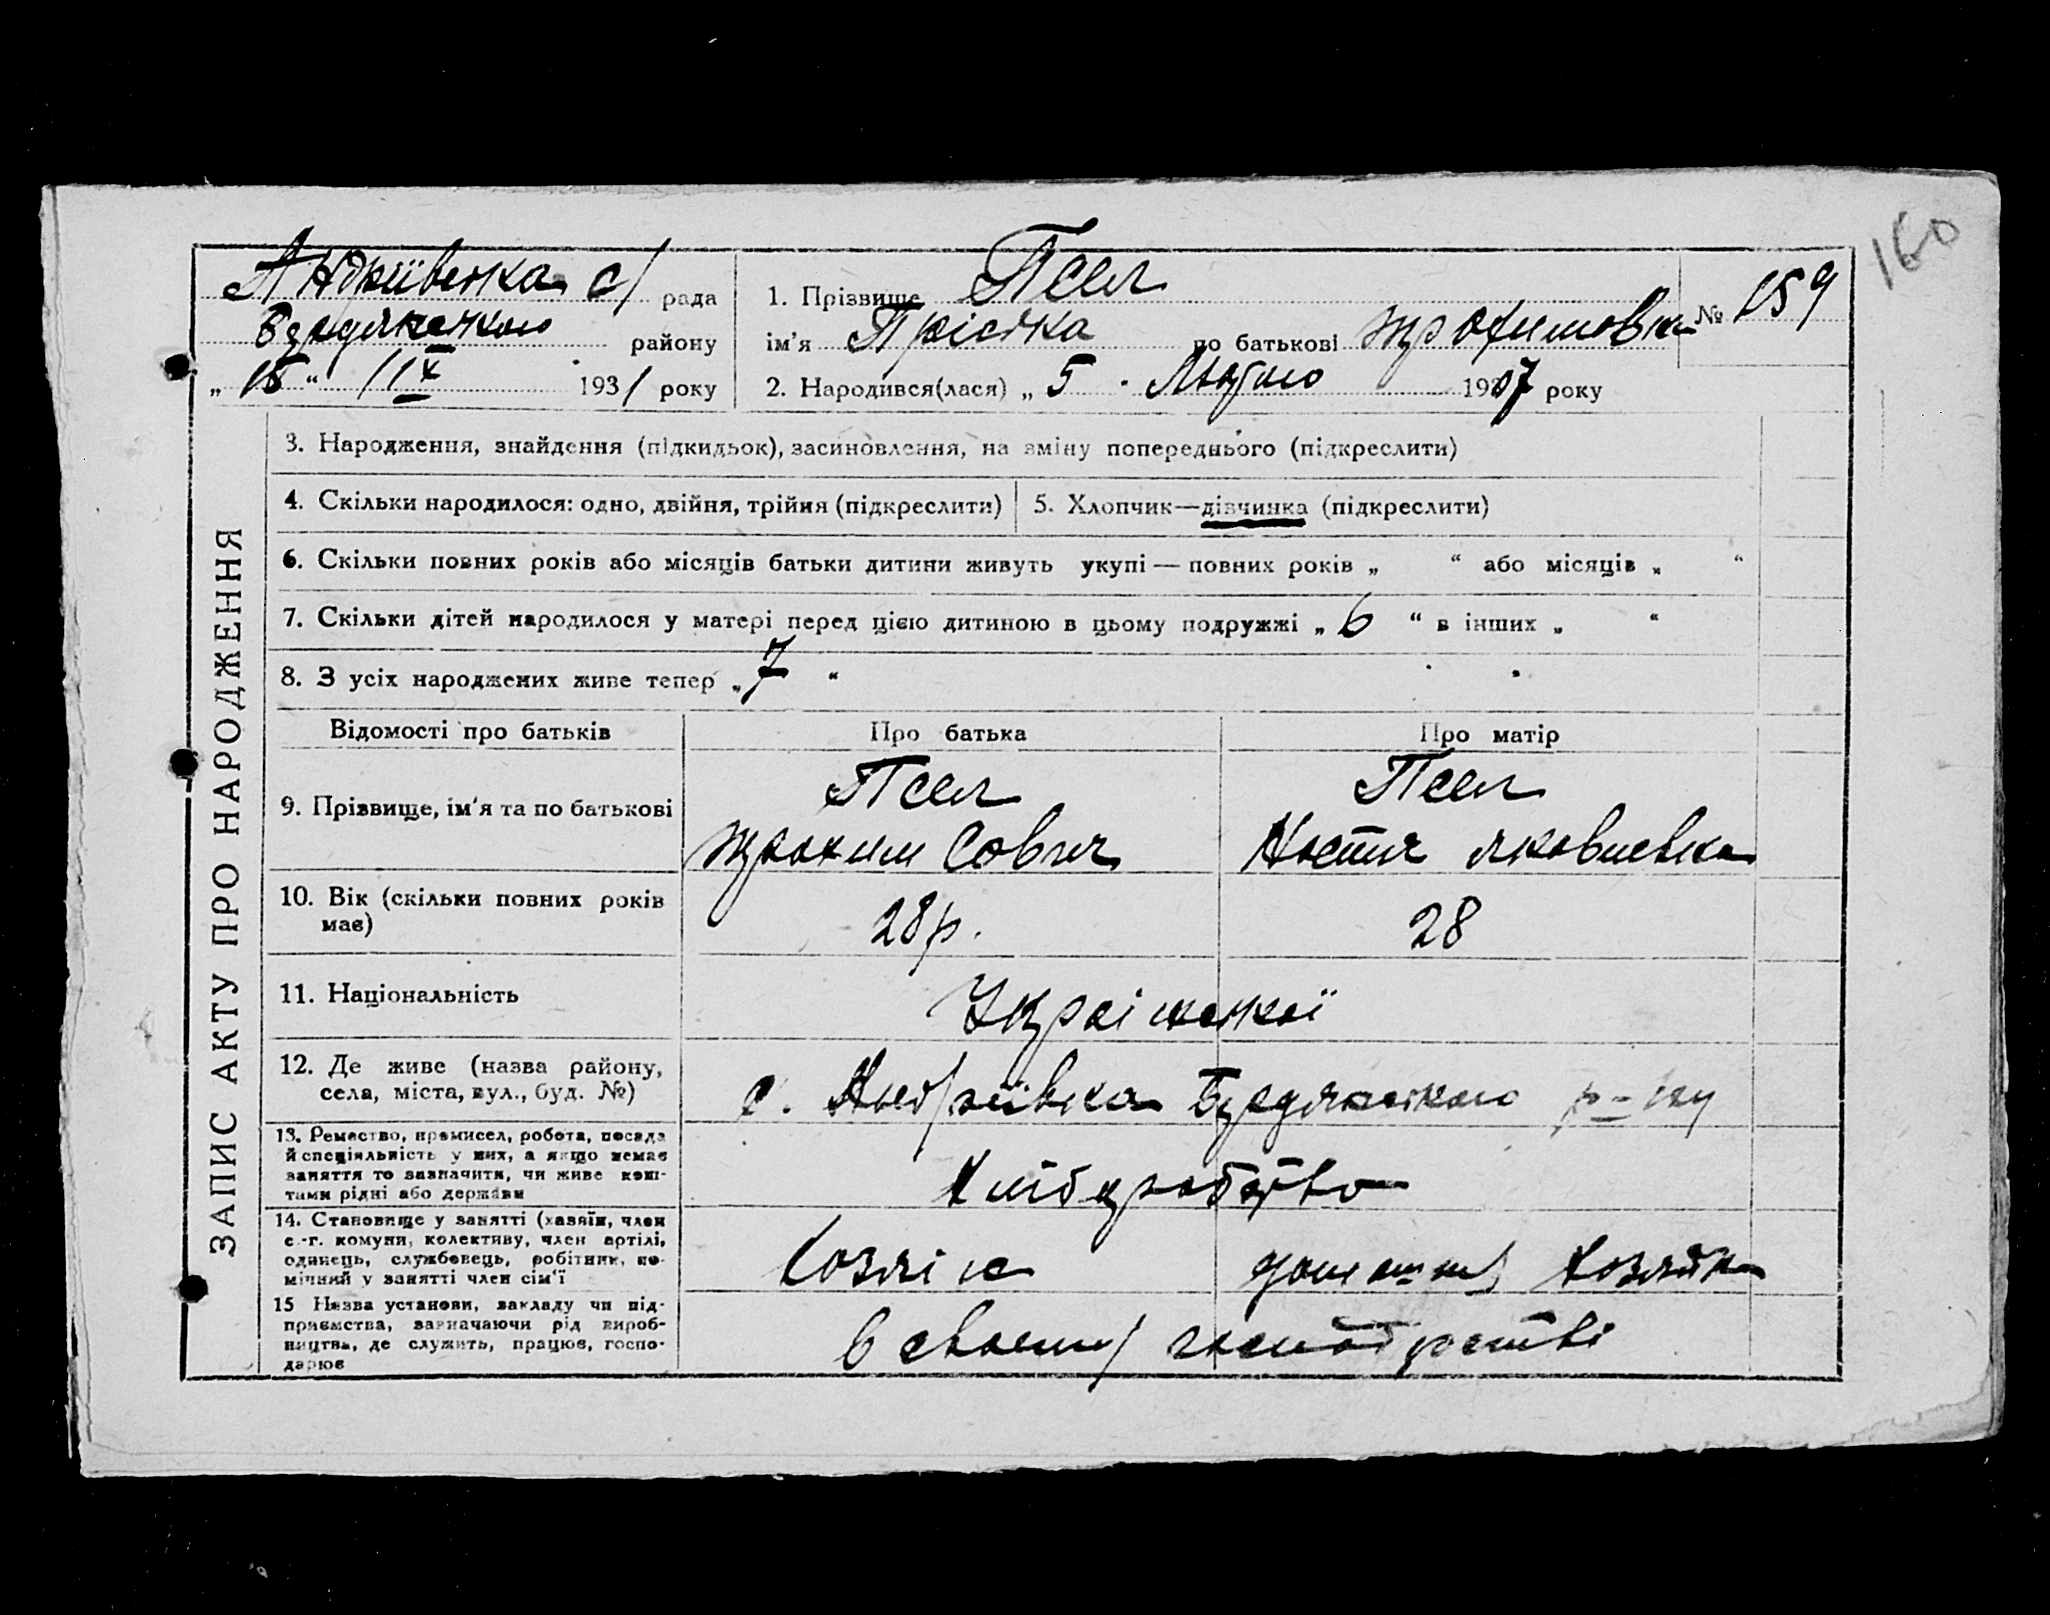 160
Андріївська с/ рада
Бердянського району
„ 15 “ IX 1931 року
1. Прізвище Псел
ім'я Прісічка по батькові Трохимовна
№ 159
2. Народився(лася) „ 5 Лютого 1907 року
ЗАПИС АКТУ ПРО НАРОДЖЕННЯ
3. Народження, знайдення (підкидьок), засиновлення, на зміну попереднього (підкреслити)
4. Скільки народилося: одно, двійня, трійня (підкреслити) 5. Хлопчик—дівчинка (підкреслити)
6. Скільки повних років або місяців батьки дитини живуть укупі — повних років „ “ або місяців „ “
7. Скільки дітей народилося у матері перед цією дитиною в цьому подружжі „ 6 “ в інших „ “
8. З усіх народжених живе тепер „ 7 “
Відомості про батьків Про батька Про матір
9. Прізвище, ім'я та по батькові
Псел
Трохим Сович
Псел
Настя Яковлевна
10. Вік (скільки повних років має)
28 р.
28
11. Національність
Української
12. Де живе (назва району,
села, міста, вул., буд. №)
с. Андріївка Бердянського р-ну
13. Ремество, промисел, робота, посада
й спеціяльність у них, а якщо немає
заняття то зазначити, чи живе кош-
тами рідні або держави
Хліборобство
14. Становище у занятті (хазяїн, член
с.-г. комуни, колективу, член артілі,
одинець, службовець, робітник, по-
мічний у занятті член сім'ї
Хозяін
Хозяйка
15 Назва установи, закладу чи під-
приємства, зазначаючи рід вироб-
ництва, де служить, працює, госпо-
дарює
в своему господрстві